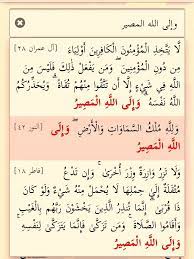 وإلى الله المصير
[آل عمران ٢٨]
لَّا يَتَّخِذِ الْمُؤْمِنُونَ الْكَافِرِينَ أَوْلِيَاءَ
مِن دُونِ الْمُؤْمِنِينَ ۖ وَمَن يَفْعَلْ ذَٰلِكَ فَلَيْسَ مِنَ
اللَّهِ فِي شَيْءٍ إِلَّا أَن تَتَّقُوا مِنْهُمْ تُقَاةً ۗ وَيُحَذِّرُكُمُ
اللَّهُ نَفْسَهُ ۗ وَإِلَى اللَّهِ الْمَصِيرُ
وَلِلَّهِ مُلْكُ السَّمَاوَاتِ وَالْأَرْضِ ۖ وَإِلَى [النور ٤٢]
اللَّهِ الْمَصِيرُ
[فاطر ١٨]
وَلَا تَزِرُ وَازِرَةٌ وِزْرَ أُخْرَىٰ ۚ وَإِن تَدْعُ
مُثْقَلَةٌ إِلَىٰ حِمْلِهَا لَا يُحْمَلْ مِنْهُ شَيْءٌ وَلَوْ كَانَ ذَا
قُرْبَىٰ ۗ إِنَّمَا تُنذِرُ الَّذِينَ يَخْشَوْنَ رَبَّهُم بِالْغَيْبِ
وَأَقَامُوا الصَّلَاةَ ۚ وَمَن تَزَكَّىٰ فَإِنَّمَا يَتَزَكَّىٰ لِنَفْسِهِ ۚ
وَإِلَى اللَّهِ الْمَصِيرُ